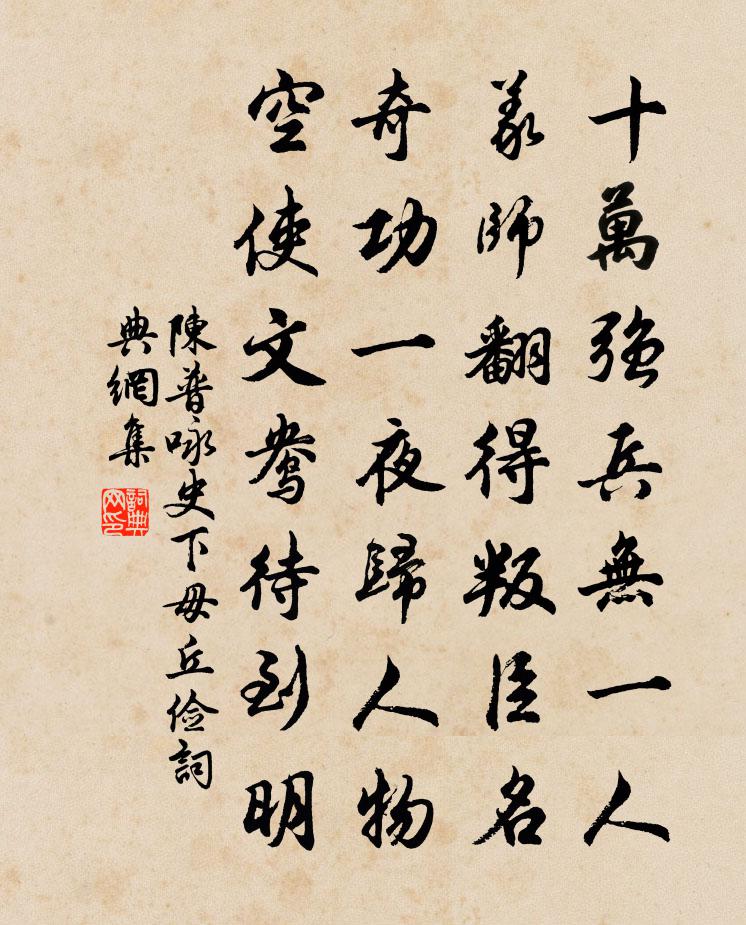 十萬強兵無一人
義師翻得叛臣名
奇功一夜歸人物
空使文鴦待到明
陳普咏史下毋丘儉詞
典網集
詞典
网印